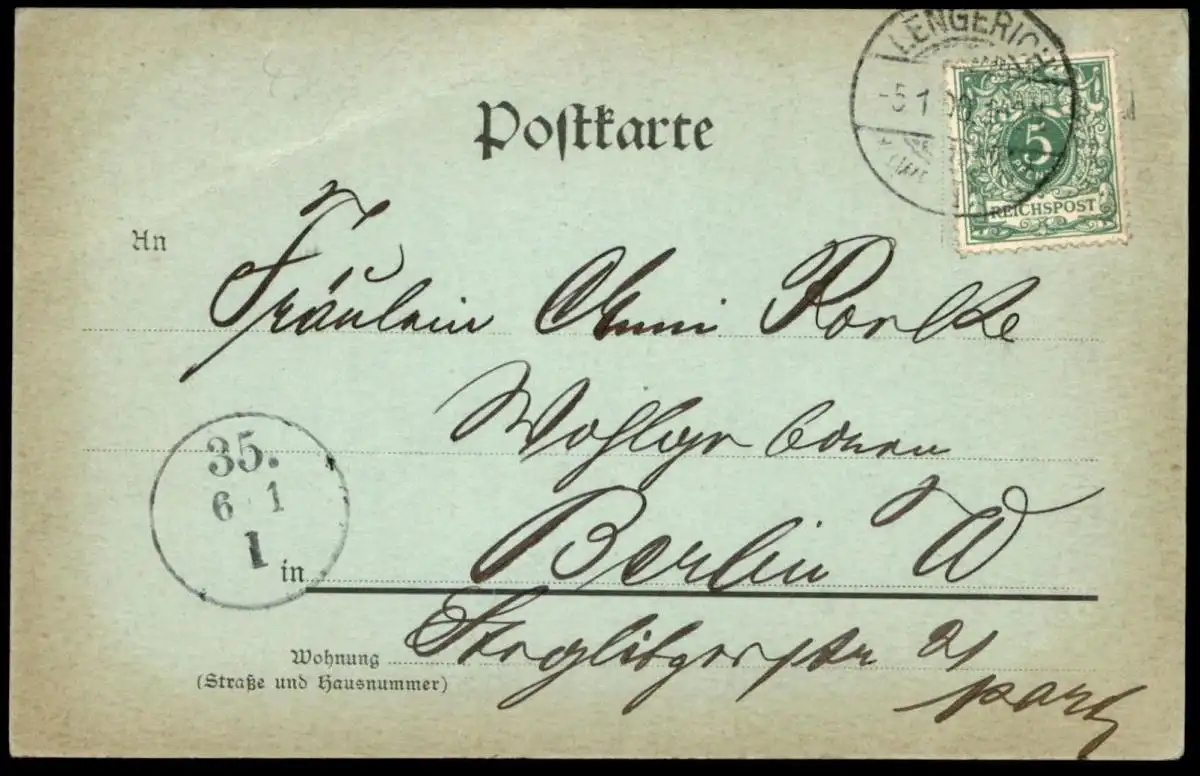 LENGERICH
-5 1 00
5
REICHSPOST
Postkarte
An
Fräulein Anni
Wohlgeboren
35.
6 1
1
in Berlin W
Wohnung Steglitzerstr 21
(Straße und Hausnummer)
part